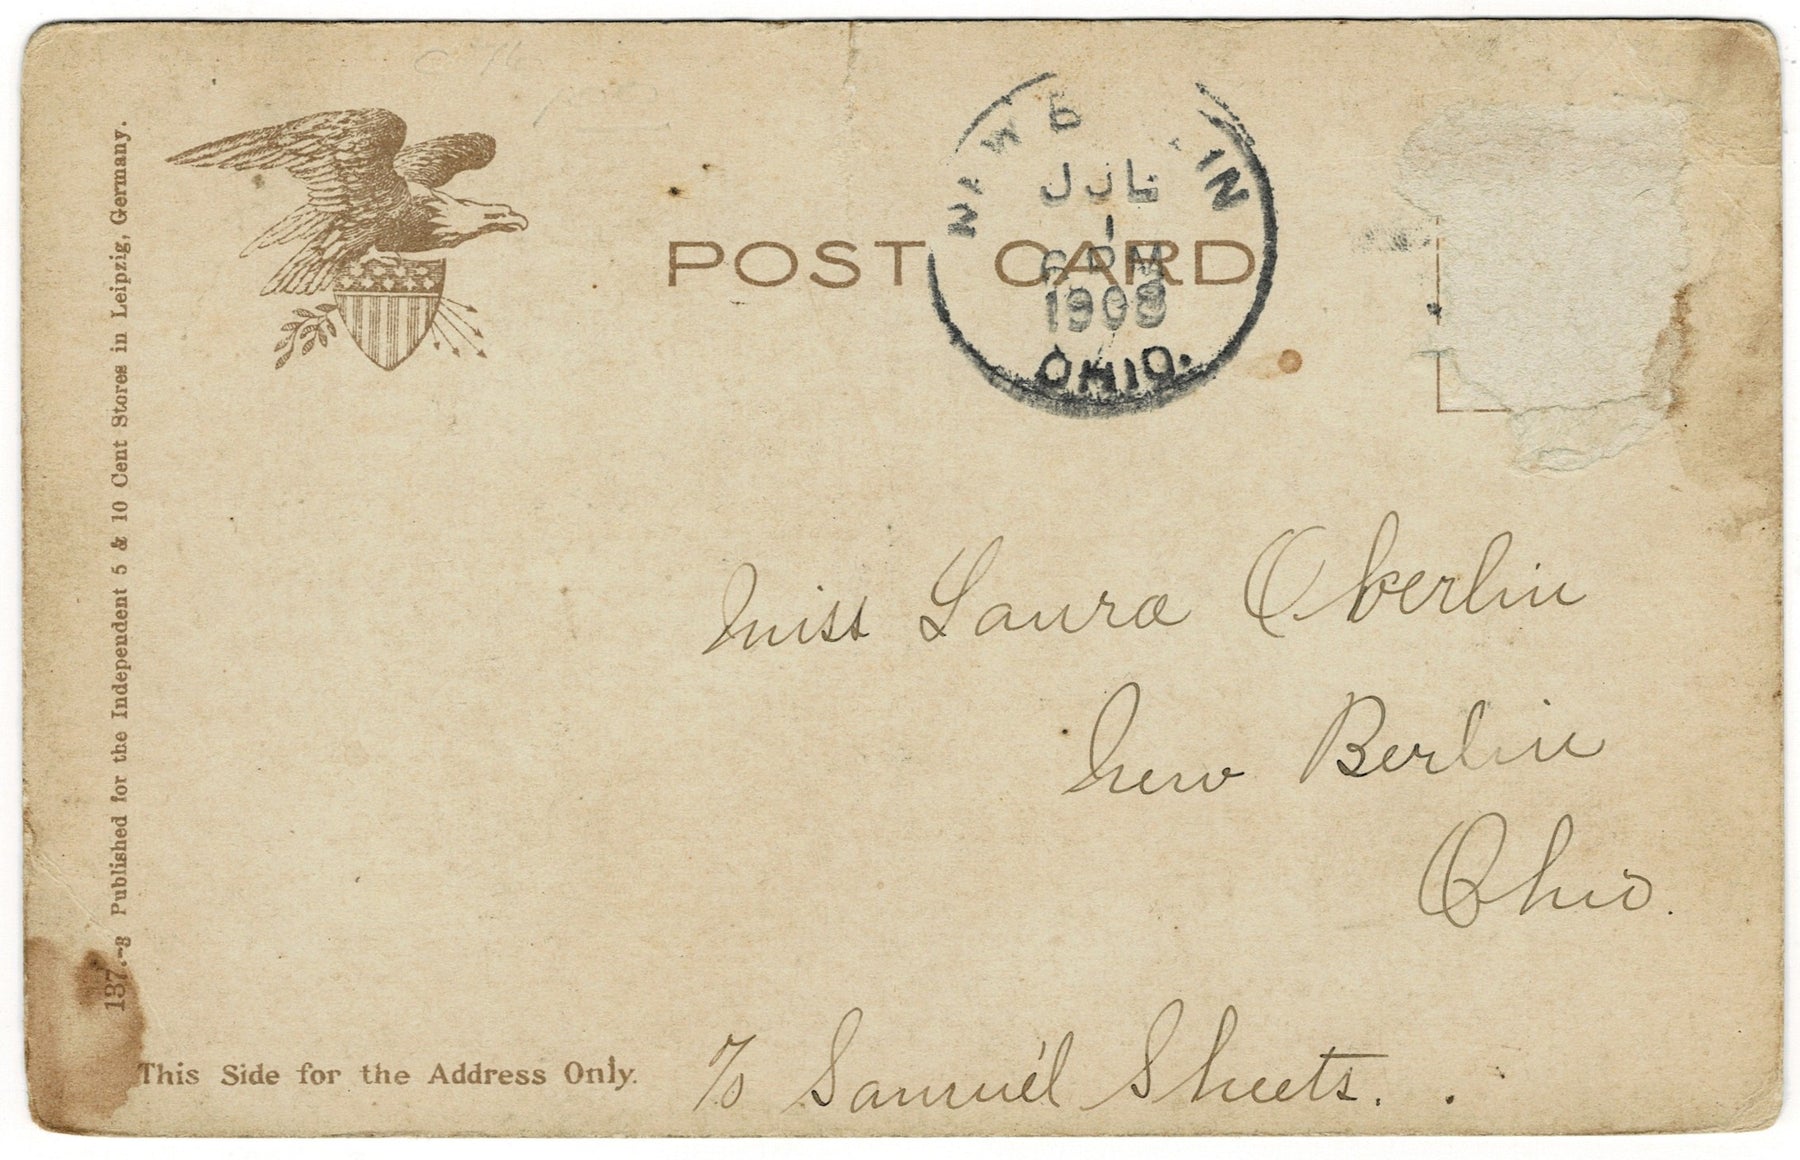 137.-3 Published for the Independent 5 & 10 Cent Stores in Leipzig, Germany.
POST CARD
JUL
1
6 PM
1908
OHIO.
Miss Laura Oberlin
New Berlin
Ohio.
This Side for the Address Only.
℅ Samuel Sheets.